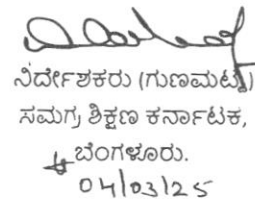 ನಿರ್ದೇಶಕರು (ಗುಣಮಟ್ಟ)
ಸಮಗ್ರ ಶಿಕ್ಷಣ ಕರ್ನಾಟಕ,
ಬೆಂಗಳೂರು.
04/03/25